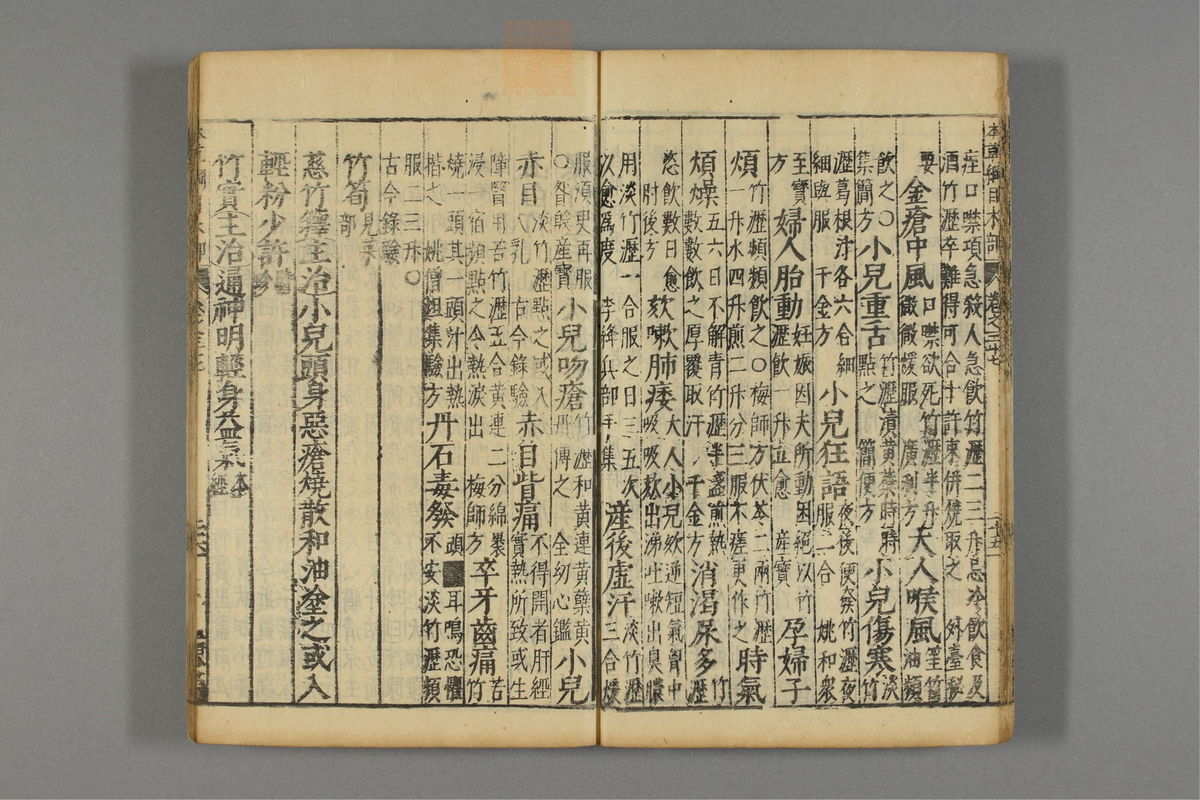 本草綱目木部 卷之三十七
痓口噤項急殺人急飲竹瀝二三升忌冷飲食及
酒竹瀝卒難得可合十許束併燒取之 外臺秘
要 金瘡中風口噤欲死竹瀝半升
微微煖服 廣利方 大人喉風油頻
飲之〇 小兒重舌竹瀝漬黃蘗時時
集簡方 點之 簡便方 小兒傷寒淡竹
瀝葛根汁各六合細
細與服 千金方 小兒狂語夜後便發竹瀝夜
服二合 姚和衆
至寶
方 婦人胎動妊娠因夫所動困絕以竹
瀝飲一升立愈 產寶 孕婦子
煩竹瀝頻頻飲之〇梅師方茯苓二兩竹瀝
一升水四升煎二升分三服不瘥更作之 時氣
煩燥五六日不解青竹瀝半盞煎熱
數數飲之厚覆取汗 千金方 消渴尿多竹瀝
恣飲數日愈
肘後方 欬嗽肺痿大人小兒欬逆短氣胸中
吸吸欬出涕唾嗽出臭膿
用淡竹瀝一合服之日三五次
以愈爲度 李絳兵部手集 產後虛汗淡竹瀝
三合煖
服須更再服
〇昝殷產寶 小兒吻瘡竹瀝和黃連黃蘗黃
丹傅之 全幼心鑑 小兒
赤目淡竹瀝點之或入
人乳 古今錄驗 赤目眥痛不得開者肝經
實熱所致或生
障翳用苦竹瀝五合黃連二分綿裹
浸一宿頻點之令熱淚出 梅師方 卒牙齒痛苦竹
燒一頭其一頭汁出熱
揩之 姚僧坦集驗方 丹石毒發頭 耳鳴恐懼
不安淡竹瀝頻
服二三升〇
古今錄驗
竹筍見菜
部
慈竹籜主治小兒頭身惡瘡燒散和油塗之或入
輕粉少許
竹實主治通神明輕身益氣本
經